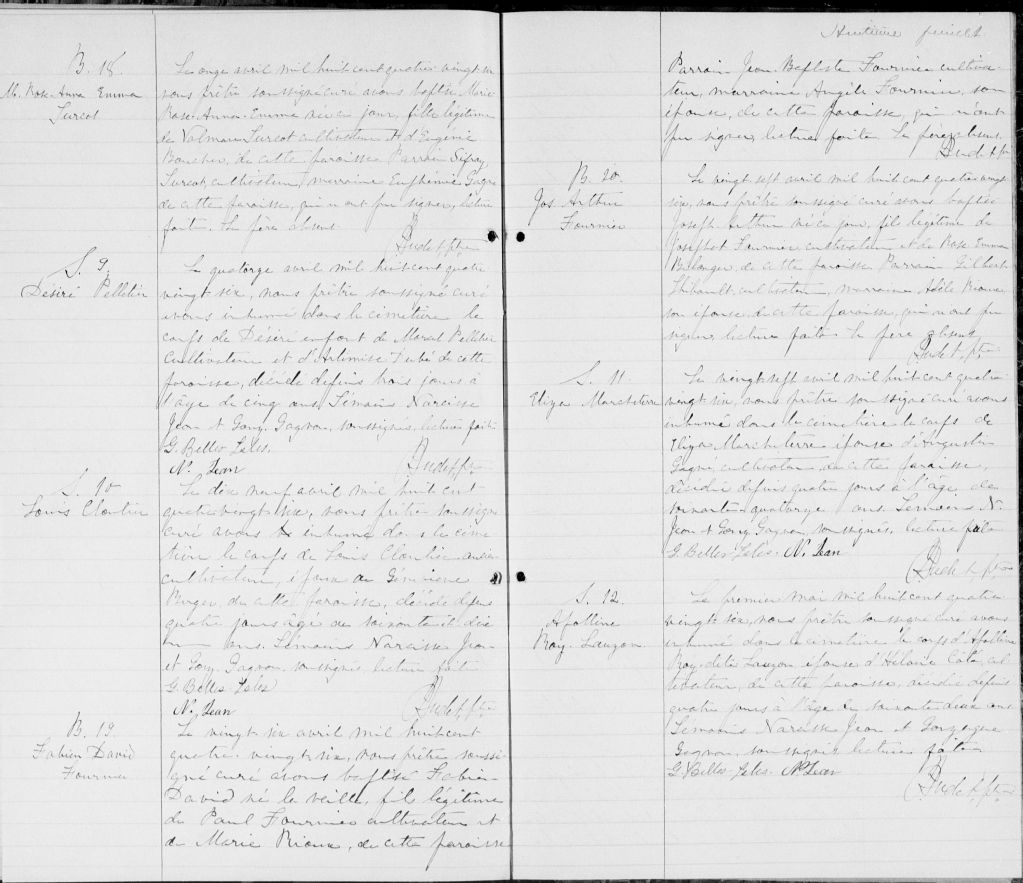 B. 18.
M. Rose-Anna Emma
Turcot
Le onze avril mil huit cent quatre-vingt-six
nous prêtre soussigné curé avons baptisé Marie
Rose-Anna-Emma née ce jour, fille légitime
de Valmon Turcot cultivateur et d'Eugénie
Boucher, de cette paroisse Parrain
Turcot, cultivateur, marraine Euphémie Gagné
de cette paroisse, qui n'ont pu signer, lecture
faite. Le père absent.
ptre
S. 9.
Désiré Pelletier
Le quatorze avril mil huit cent quatre
vingt-six, nous prêtre soussigné curé
avons inhumé dans le cimetière le
corps de Désiré enfant de Marcel Pelletier
cultivateur et d'Artémise Dubé de cette
paroisse, décédé depuis trois jours à
l'âge de cinq ans. Témoins Narcisse
Jean et Gonz. Gagnon, soussignés, lecture faite
G. Belles-Isles.
N. Jean
ptre
S. 10
Louis Cloutier
Le dix neuf avril mil huit cent
quatre vingt six, nous prêtre soussigné
curé avons inhumé dans le cime-
tière le corps de Louis Cloutier ancien
cultivateur, époux de Geneviève
Berger, de cette paroisse, décédé depuis
quatre jours âgé de soixante et dix
ans. Témoins Narcisse Jean
et Gonz. Gagnon, soussignés lecture faite
G. Belles-Isles
N. Jean
ptre
B. 19.
Fabien David
Fournier
Le vingt-six avril mil huit cent
quatre-vingt-six, nous prêtre soussi-
gné curé avons baptisé Fabien
David né la veille, fils légitime
de Paul Fournier cultivateur et
de Marie Rioux, de cette paroisse
Huitième feuillet
Parrain Jean-Baptiste Fournier cultiva-
teur, marraine Angèle Fournier, son
épouse, de cette paroisse, qui n'ont
pu signer, lecture faite. Le père absent.
ptre
B. 20.
Jos Arthur
Fournier
Le vingt sept avril mil huit cent quatre vingt
six, nous prêtre soussigné curé avons baptisé
Joseph Arthur né ce jour, fils légitime de
Josephat Fournier cultivateur et de Rose Emma
Bélanger, de cette paroisse Parrain Gilbert
Thibault cultivateur, marraine Adèle Rioux,
son épouse, de cette paroisse, qui n'ont pu
signer, lecture faite le père absent
ptre
S. 11.
Eliza Marcheterre
Le vingt-sept avril mil huit cent quatre
vingt-six, nous prêtre soussigné curé avons
inhumé dans le cimetière le corps de
Eliza Marcheterre épouse d'Augustin
Gagné, cultivateur, de cette paroisse,
décédée depuis quatre jours à l'âge de
soixante quatorze ans. Témoins N.
Jean et Gonz. Gagnon, soussignés, lecture faite
G. Belles-Isles. N. Jean
ptre
S. 12.
Apolline
Roy-Lauzon
Le premier mai mil huit cent quatre
vingt-six, nous prêtre soussigné curé avons
inhumé dans le cimetière le corps d'Apolline
Roy dite Lauzon, épouse d'Hilaire Côté, cul-
tivateur, de cette paroisse, décédée depuis
quatre jours à l'âge de soixante deux ans
Témoins Narcisse Jean et
Gagnon soussignés lecture faite
G. Belles-Isles. N. Jean
ptre